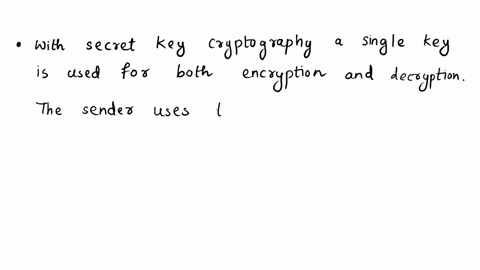 • With secret key cryptography a single key
is used for both encryption and decryption.
The sender uses